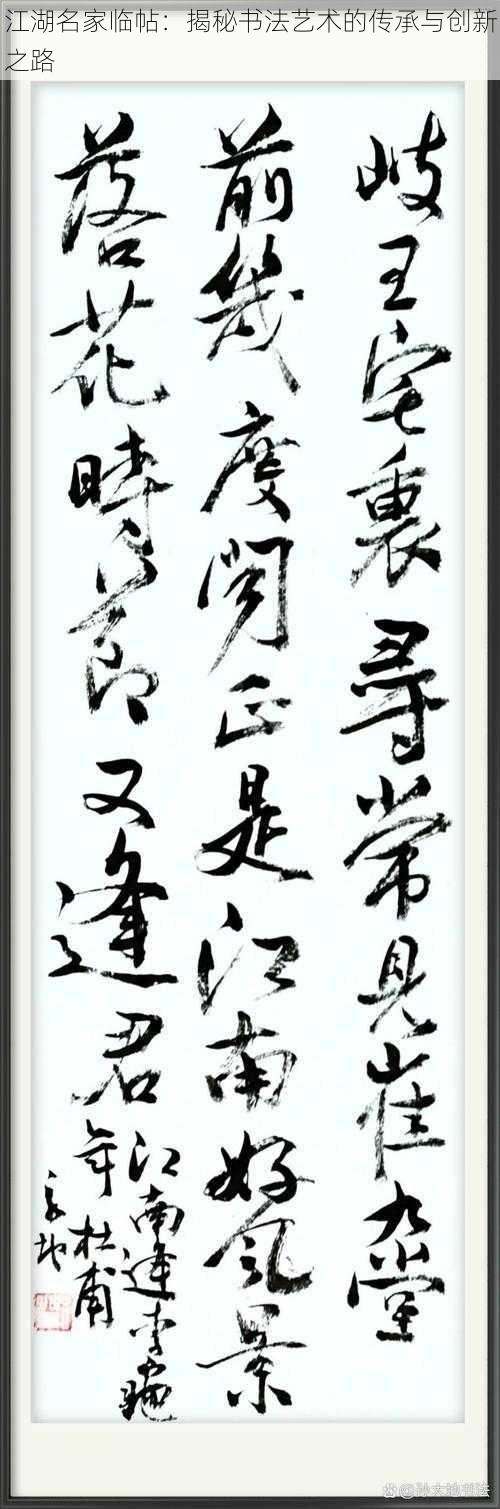 江湖名家临帖：揭秘书法艺术的传承与创新
之路
岐王宅裏尋常見崔九堂
前幾度聞正是江南好風景
落花時節又逢君
江南逢李龜
年 杜甫